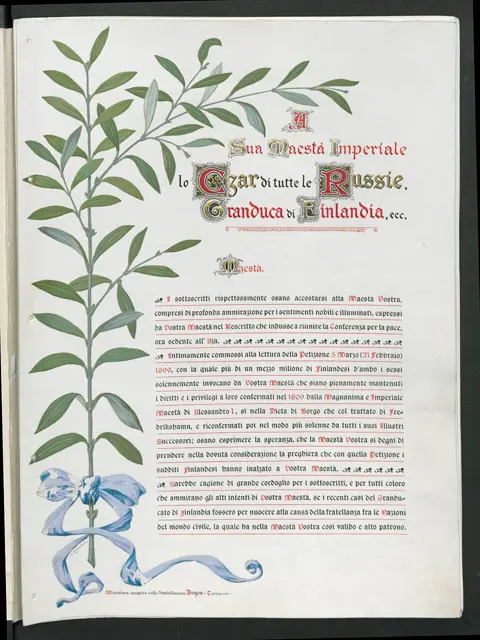 A
Sua Maestà Imperiale
lo Czar di tutte le Russie,
Granduca di Finlandia, ecc.
Maestà.
I sottoscritti rispettosamente osano accostarsi alla Maestà Vostra,
compresi di profonda ammirazione per i sentimenti nobili e illuminati, espressi
da Vostra Maestà nel Rescritto che indusse a riunire la Conferenza per la pace,
ora sedente all'Aja.
Intimamente commossi alla lettura della Petizione 5 Marzo (21 Febbraio)
1899, con la quale più di un mezzo milione di Finlandesi d'ambo i sessi
solennemente invocano da Vostra Maestà che siano pienamente mantenuti
i diritti e i privilegi a loro confermati nel 1809 dalla Magnanima e Imperiale
Maestà di Alessandro I, sì nella Dieta di Borgo che col trattato di Fre-
drikshamn, e riconfermati poi nel modo più solenne da tutti i suoi Illustri
Successori; osano esprimere la speranza, che la Maestà Vostra si degni di
prendere nella dovuta considerazione la preghiera che con quella Petizione i
sudditi Finlandesi hanno inalzato a Vostra Maestà.
Sarebbe cagione di grande cordoglio per i sottoscritti, e per tutti coloro
che ammirano gli alti intenti di Vostra Maestà, se i recenti casi del Grandu-
cato di Finlandia fossero per nuocere alla causa della fratellanza fra le Nazioni
del mondo civile, la quale ha nella Maestà Vostra così valido e alto patrono.
Miniatura eseguita nello Stabilimento Doyen - Torino